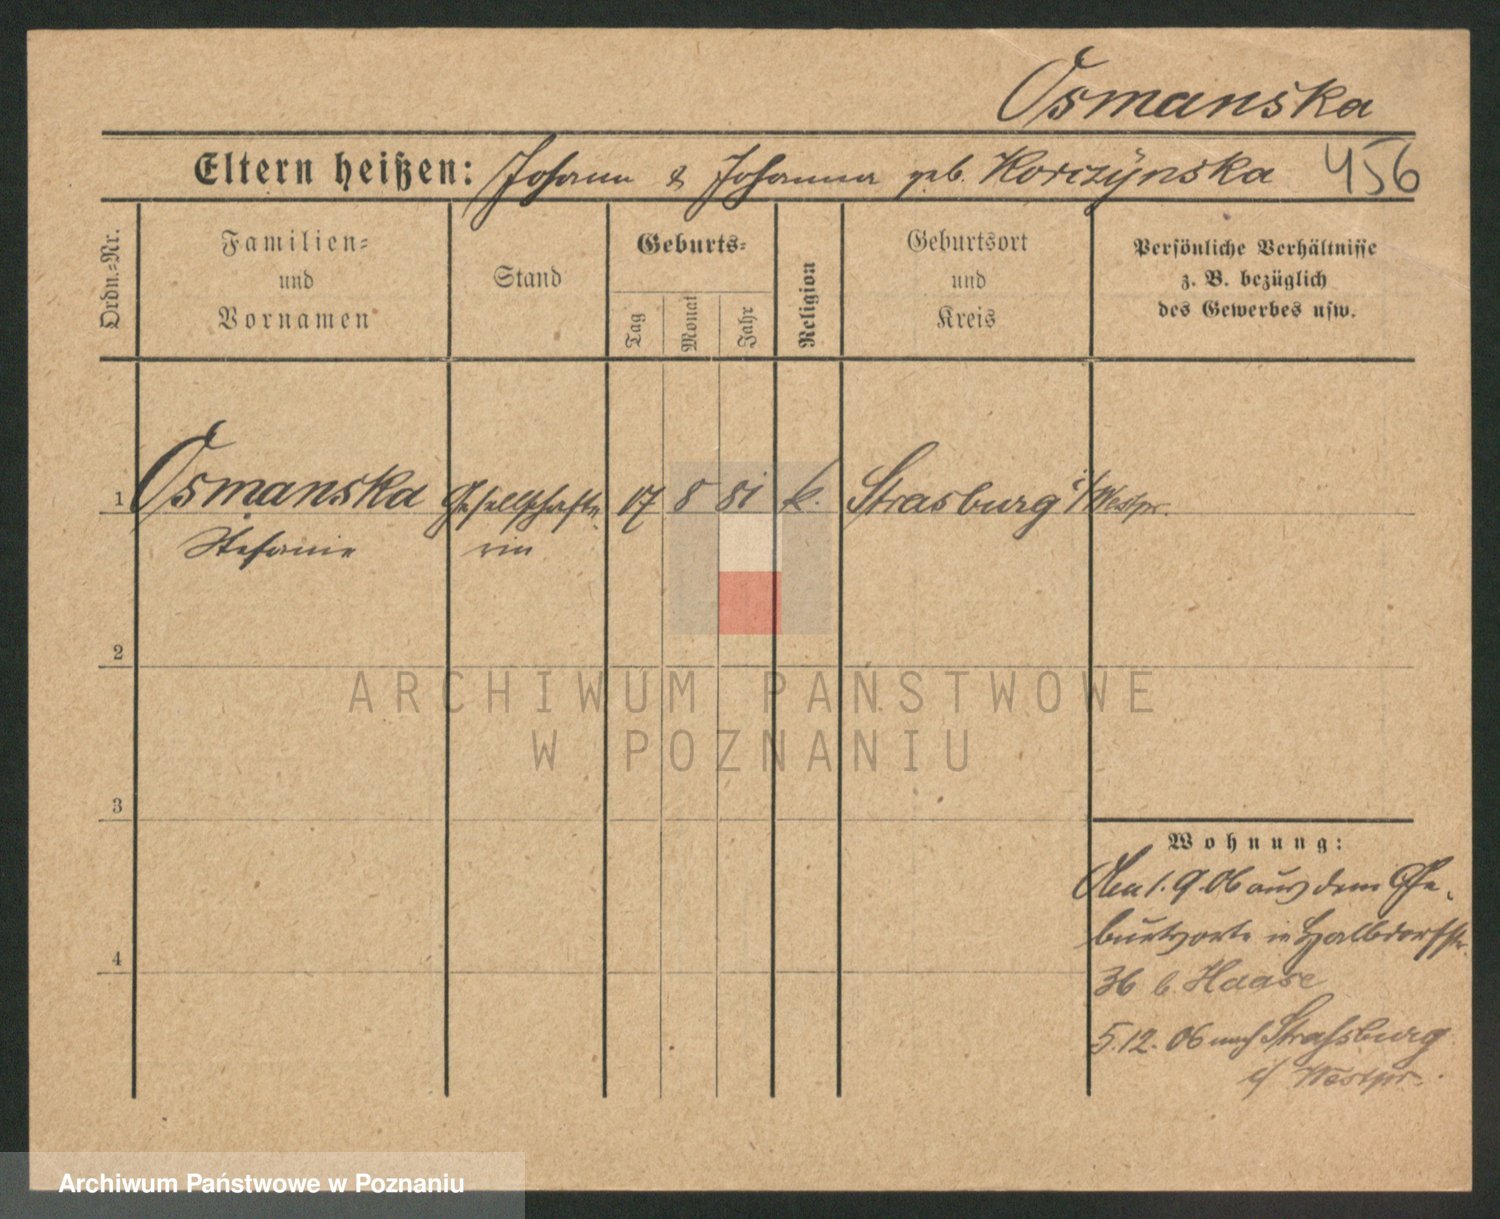 Osmanska
Eltern heißen: Johann & Johanna geb. Korczynska 456
Ordn.=Nr.
Familien=
und
Vornamen
Stand
Geburts=
Tag
Monat
Jahr
Religion
Geburtsort
und
Kreis
Persönliche Verhältnisse
z. B. bezüglich
des Gewerbes usw.
1 Osmanska Gesellschafte 17 8 81 k. Strasburg i/Westpr.
Stefanie rin
2
ARCHIWUM PAŃSTWOWE
W POZNANIU
3
Wohnung:
1.9.06 aus dem Ge-
burtsorte in Halbdorfstr.
36 b. Haase
4
5.12.06 nach Strassburg
i/ Westpr.
Archiwum Państwowe w Poznaniu